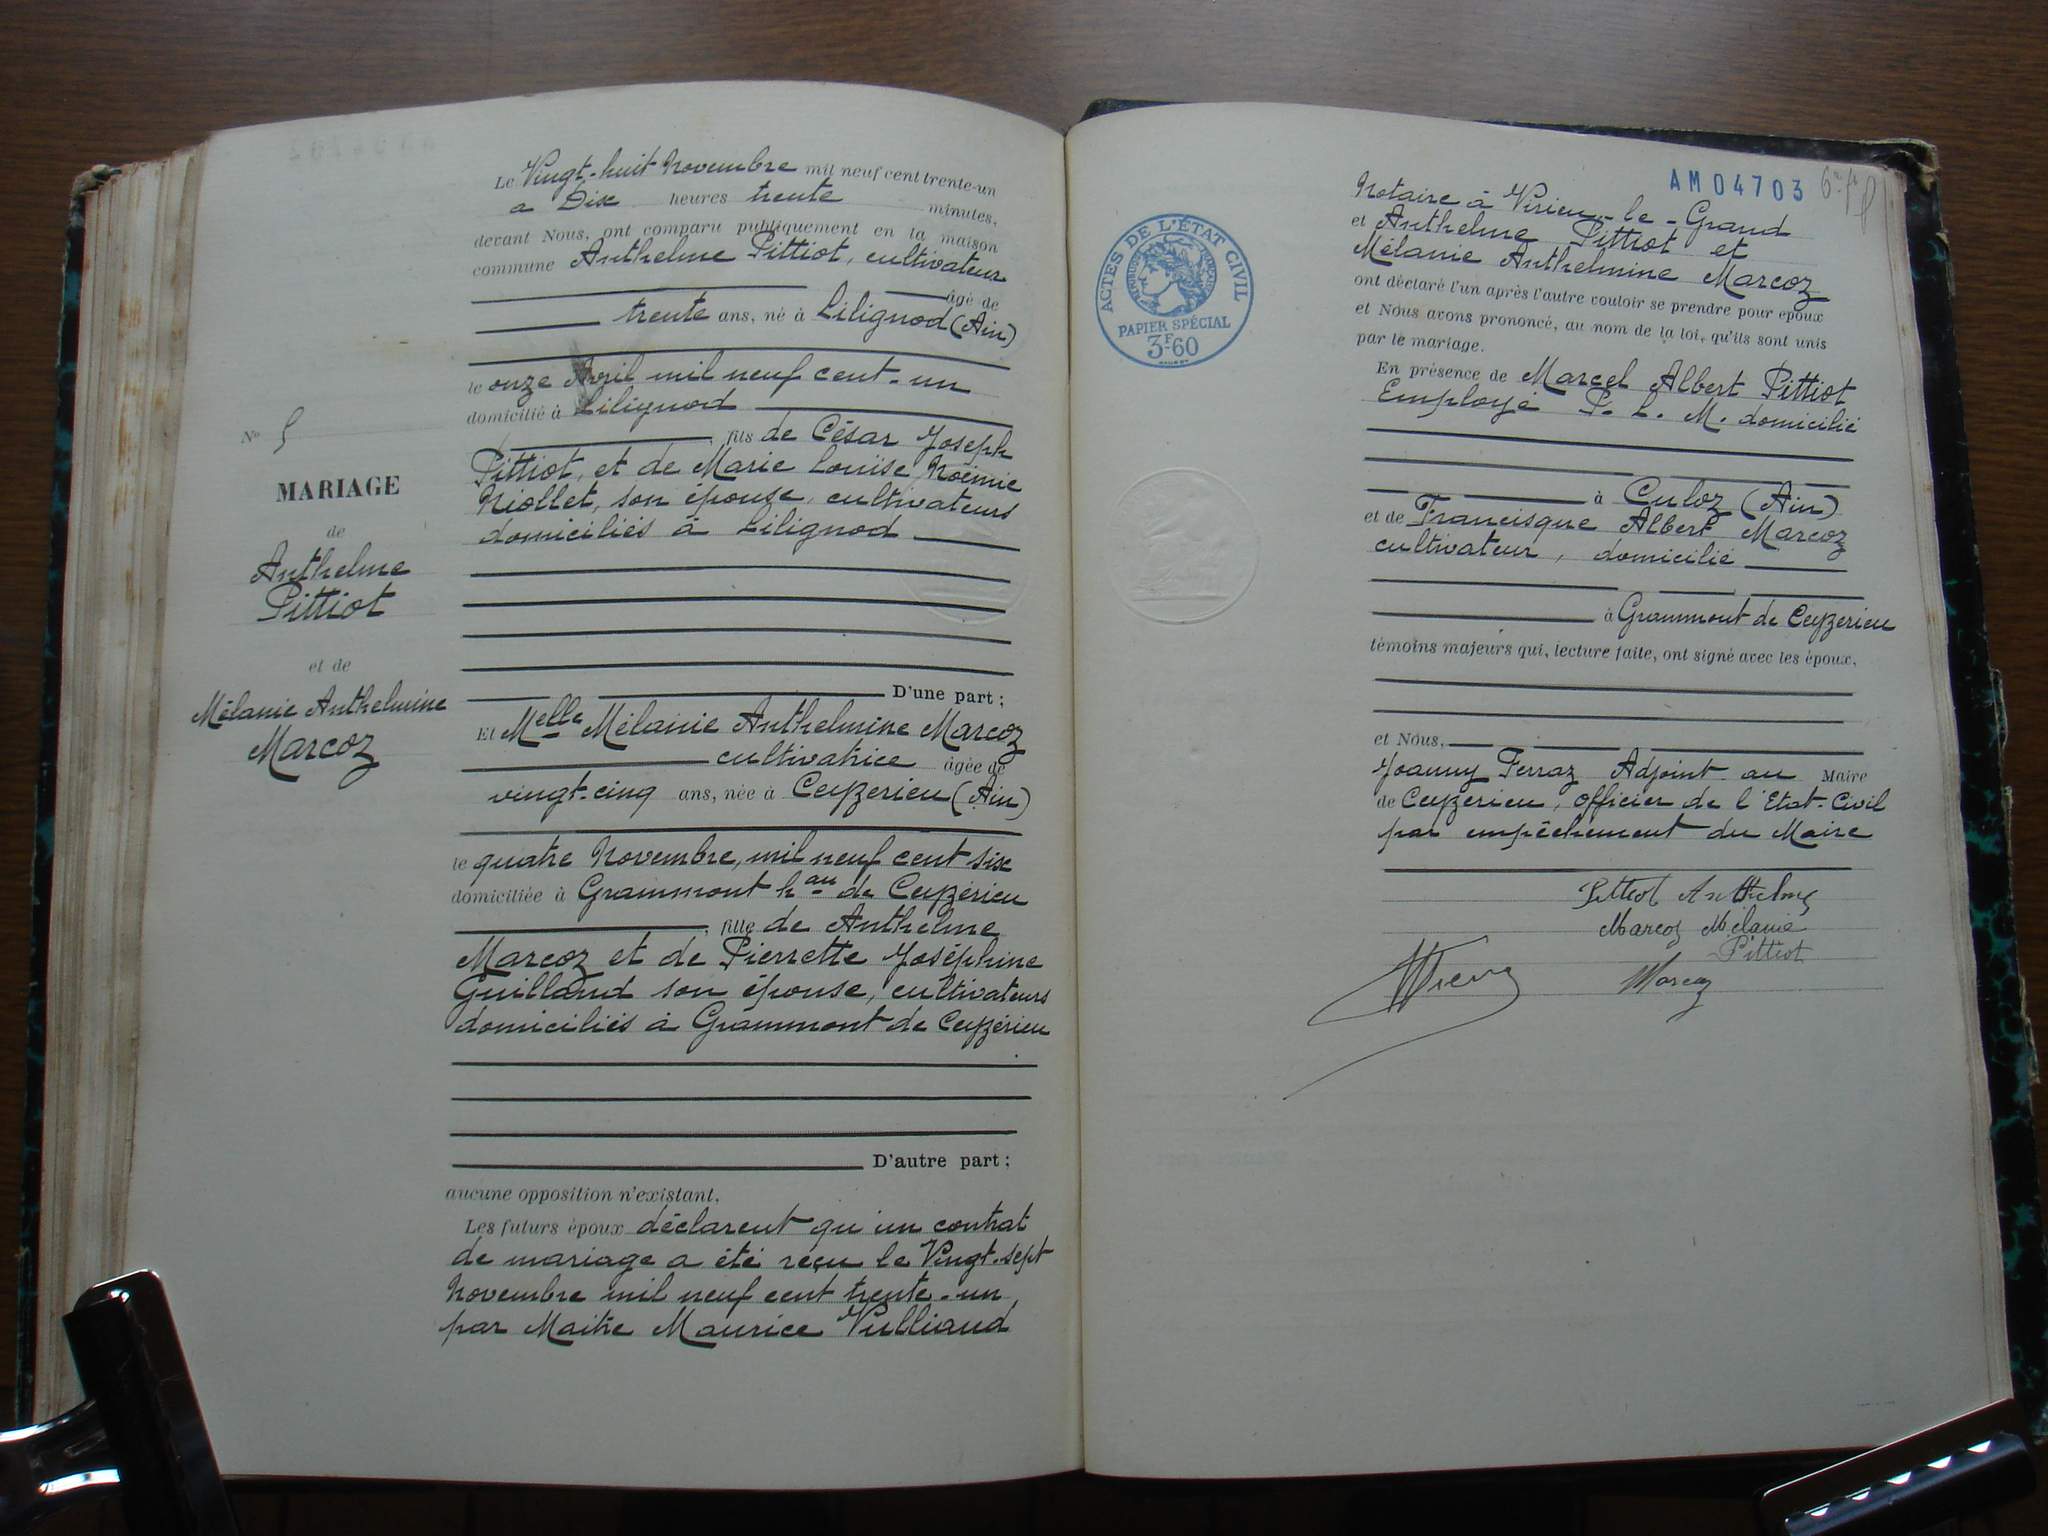 Le Vingt-huit Novembre mil neuf cent trente-un
a Dix heures trente minutes,
devant Nous, ont comparu publiquement en la maison
commune Anthelme Pittiot, cultivateur
âgé de
trente ans, né à Lilignod (Ain)
le onze Avril mil neuf cent-un
domicilié à Lilignod
, fils de César Joseph
Pittiot, et de Marie Louise Noëmie
Niollet, son épouse, cultivateurs
domiciliés à Lilignod
D'une part ;
Et Melle Mélanie Anthelmine Marcoz
cultivatrice âgée de
vingt-cinq ans, née à Ceyzerieu (Ain)
le quatre Novembre, mil neuf cent six
domiciliée à Grammont hau de Ceyzérieu
, fille de Anthelme
Marcoz et de Pierrette Joséphine
Guilland son épouse, cultivateurs
domiciliés à Grammont de Ceyzérieu
D'autre part ;
aucune opposition n'existant,
Les futurs époux déclarent qu'un contrat
de mariage a été reçu le Vingt-sept
Novembre mil neuf cent trente-un
par Maître Maurice Vulliaud
No 5
MARIAGE
de
Anthelme
Pittiot
et de
Mélanie Anthelmine
Marcoz
AM04703
ACTES DE L'ÉTAT CIVIL
PAPIER SPÉCIAL
3F60
Notaire à Virieu-le-Grand
et Anthelme Pittiot et
Mélanie Anthelmine Marcoz
ont déclaré l'un après l'autre vouloir se prendre pour époux
et Nous avons prononcé, au nom de la loi, qu'ils sont unis
par le mariage.
En présence de Marcel Albert Pittiot
Employé P. L. M. domicilié
à Culoz (Ain)
et de Francisque Albert Marcoz
cultivateur, domicilié
à Grammont de Ceyzerieu
témoins majeurs qui, lecture faite, ont signé avec les époux,
et Nous,
Joanny Ferraz Adjoint au Maire
de Ceyzerieu, officier de l'Etat-Civil
par empêchement du Maire
Pittiot Anthelme
Marcoz Mélanie
Pittiot
Marcoz